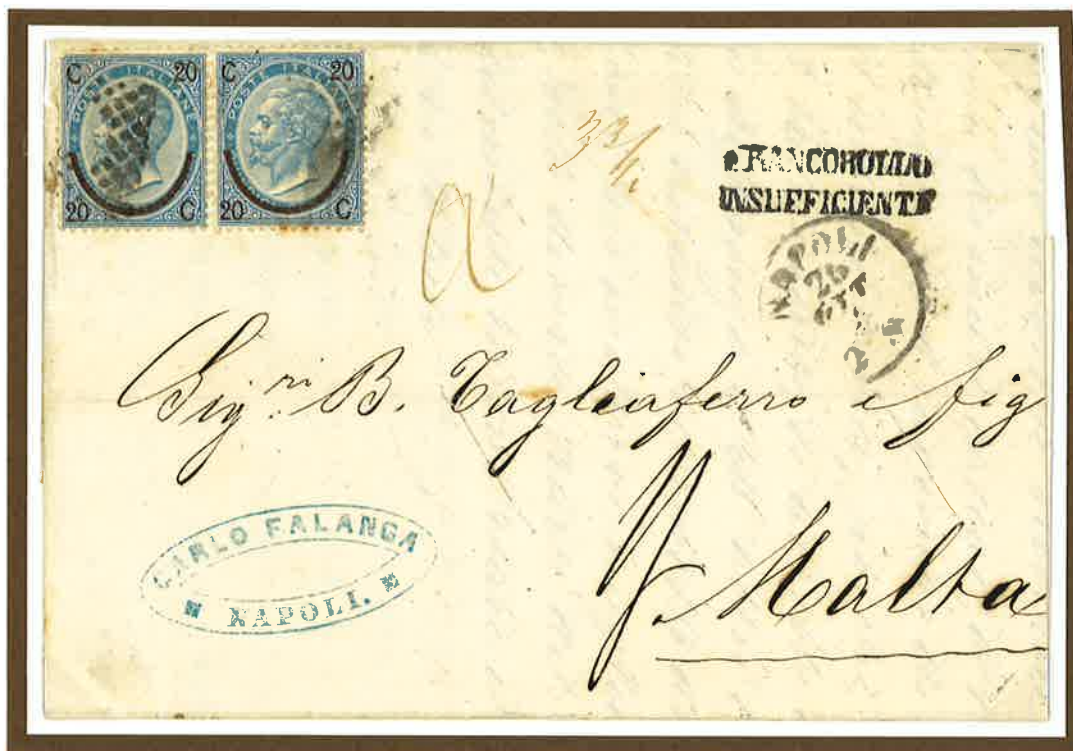 C 20
POSTE ITALIANE
20 C
C 20
POSTE ITALIANE
20 C
3 3/1
FRANCOBOLLO
INSUFFICIENTE
a
NAPOLI
26
OTT
2
Sig.ri B. Tagliaferro e fig
Malta
CARLO FALANGA
NAPOLI.